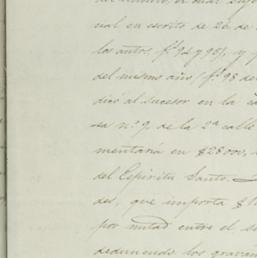 ual en escrito de 26 de
los autos f.s 94 y 95), y
del mismo año (f.s 98 de
dió al sucesor en la
sa n.o 9. de la 2a calle
mentaría en $28000,
del Espíritu Santo.
des, que importa $
por mitad entre el
deduciendo los gravám